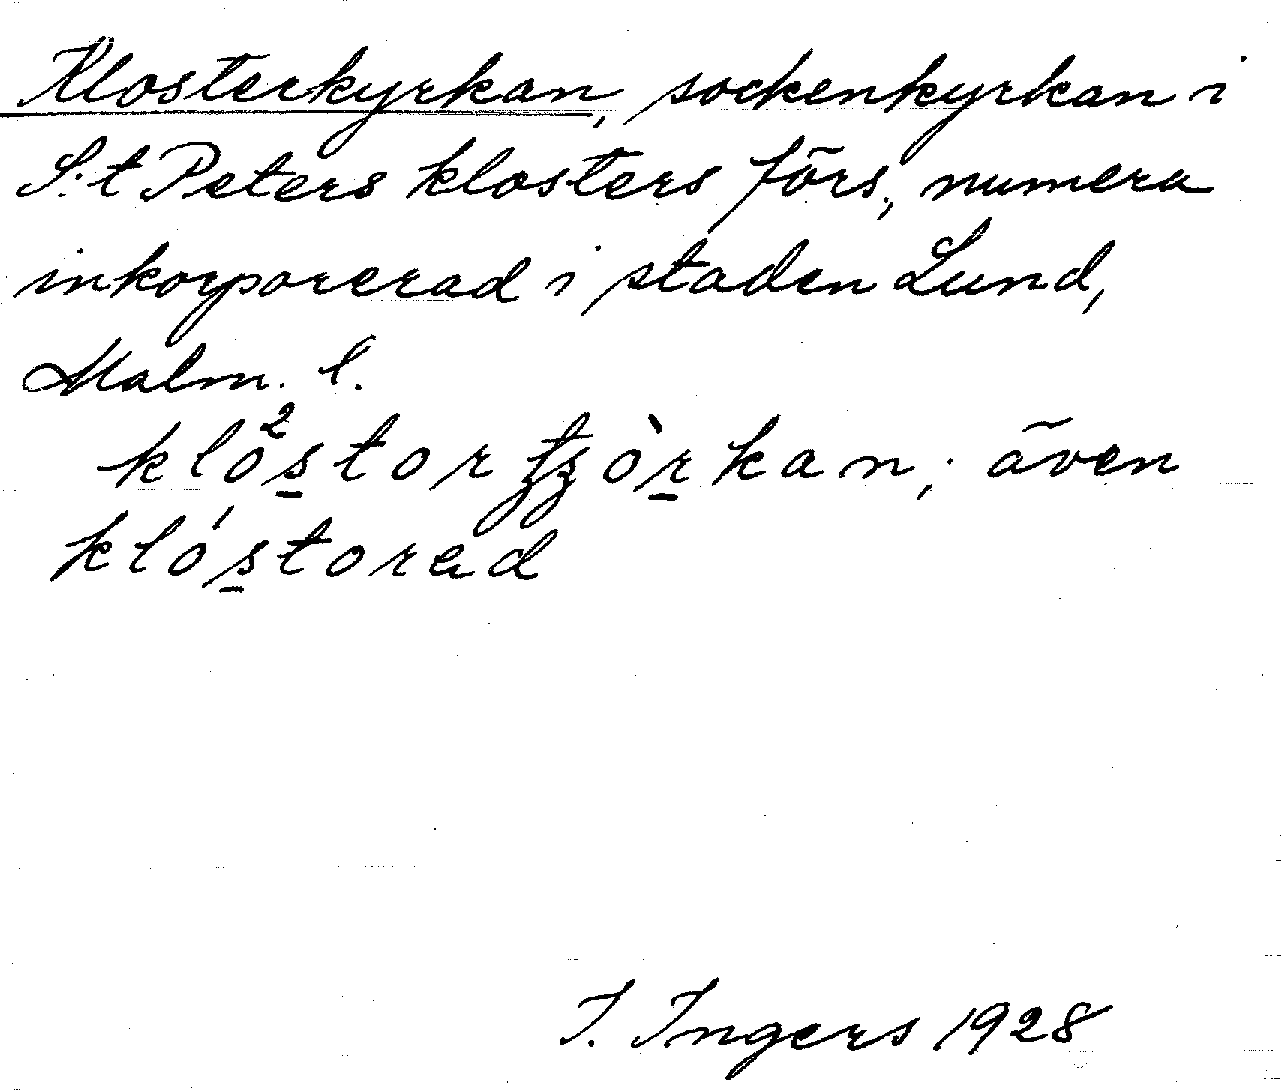 Klosterkyrkan, sockenkyrkan i
S:t Peters klosters förs, numera
inkorporerad i staden Lund,
Malm. l.
klo²stortʒòrkan; även
klóstored
I. Ingers 1928